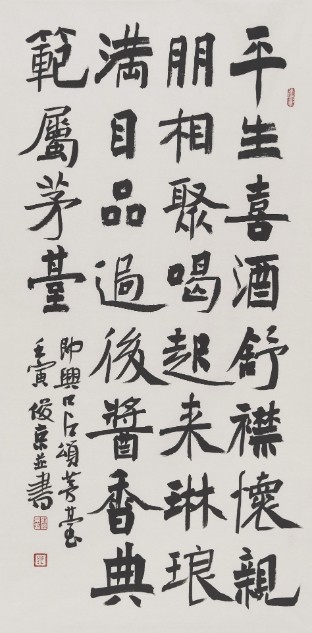 平生喜酒舒襟懷親
朋相聚喝起来琳琅
満目品過後醬香典
範屬茅臺
即興口占頌茅臺
壬寅俊京並書